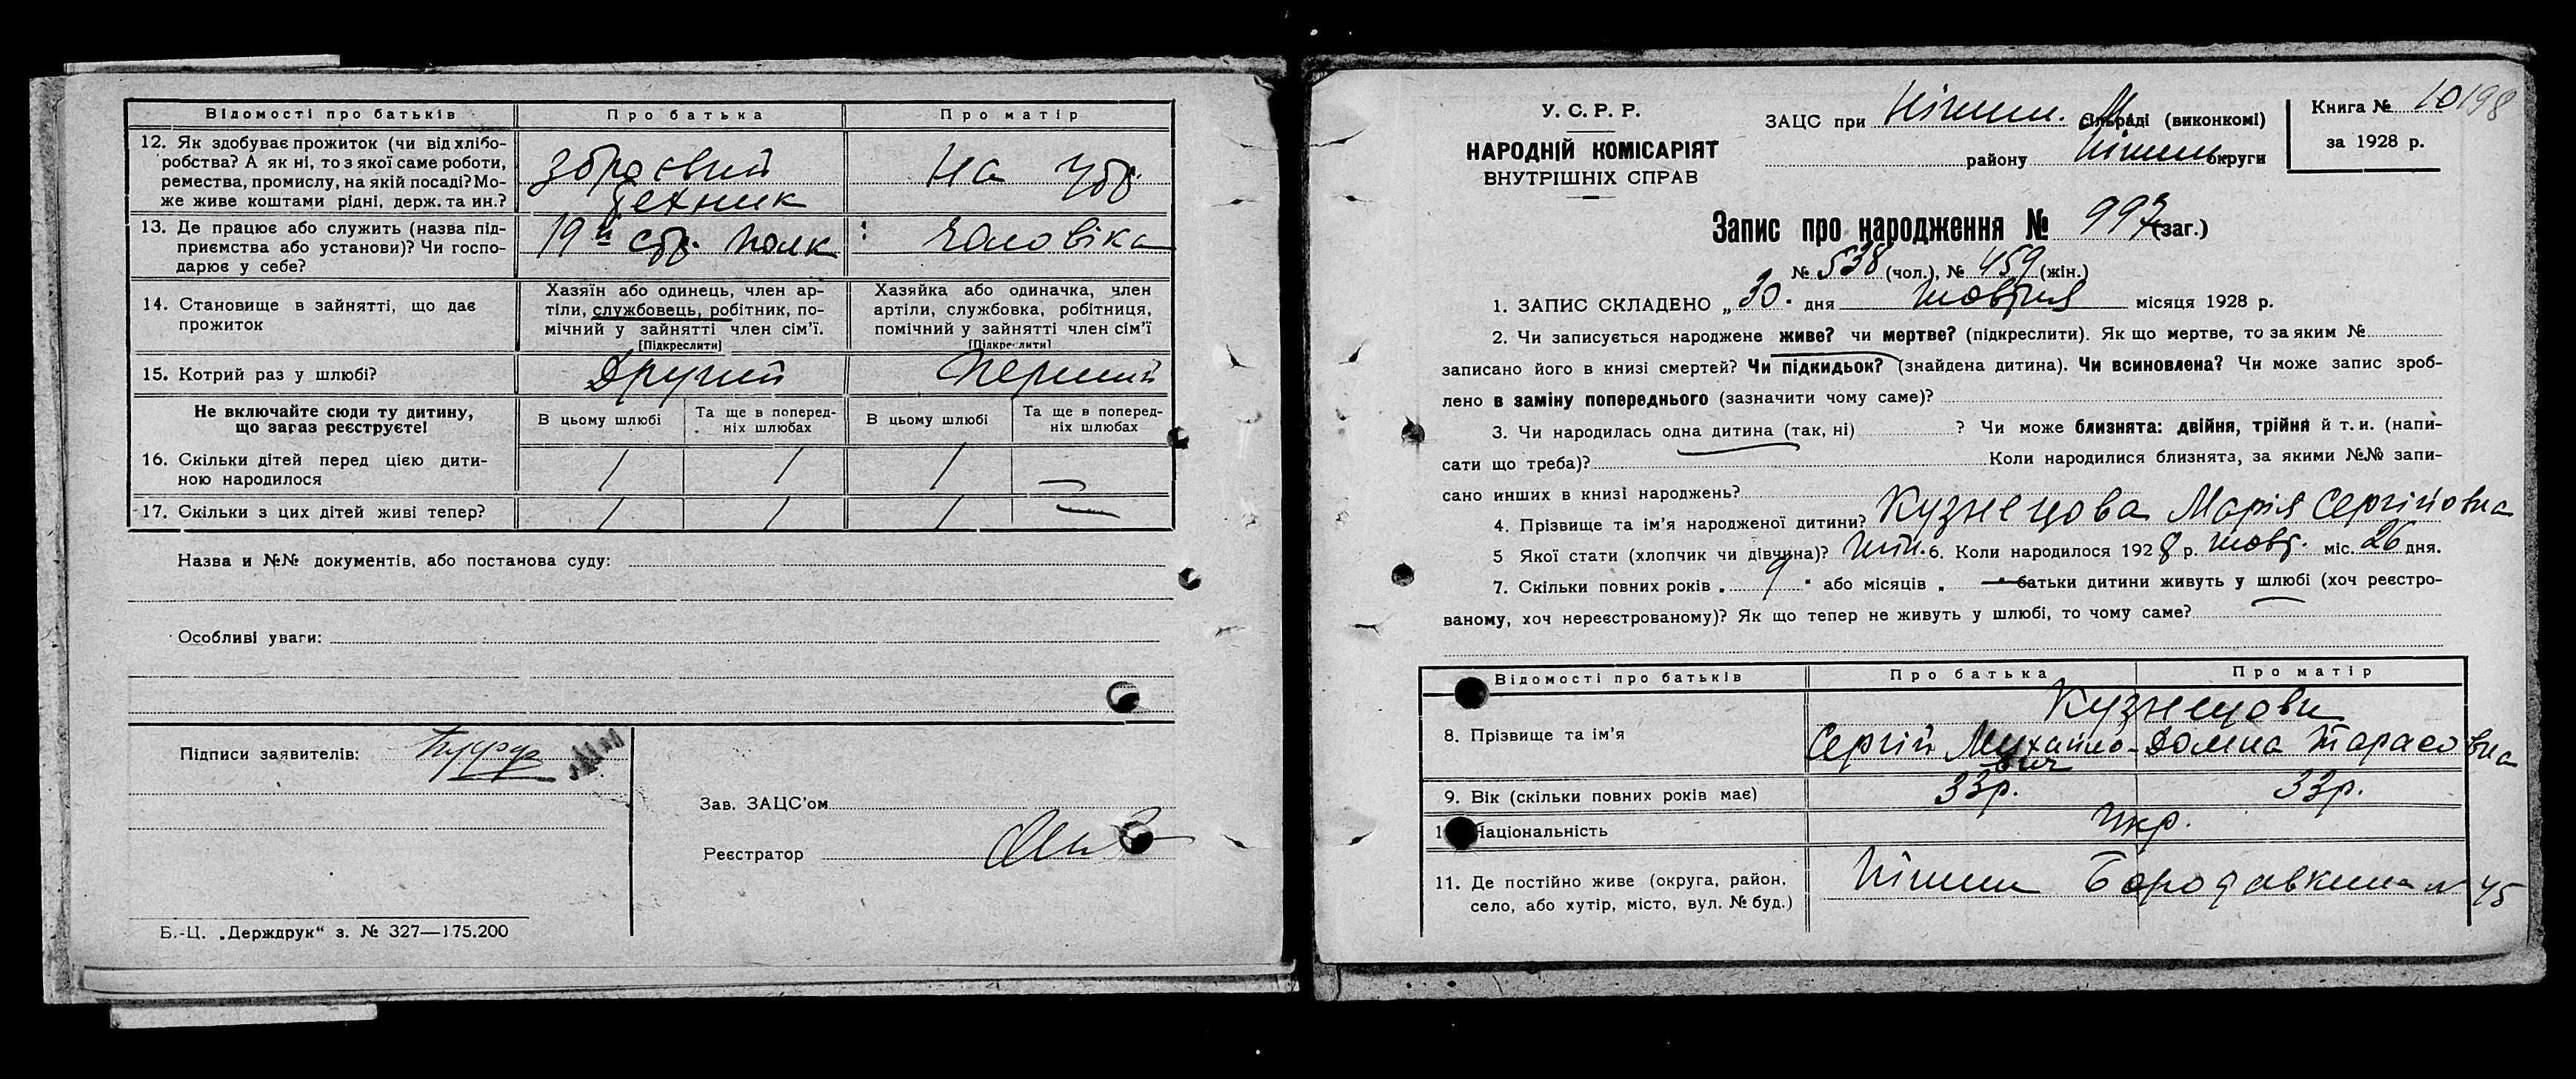 Відомості про батьків
Про батька
Про матір
12. Як здобуває прожиток (чи від хлібо-
робства? А як ні, то з якої саме роботи,
ремества, промислу, на якій посаді? Мо-
же живе коштами рідні, держ. та ин.?
зброєвий
технік
на утр.
13. Де працює або служить (назва під-
приємства або установи)? Чи госпо-
дарює у себе?
19й стр. полк
чоловіка
14. Становище в зайнятті, що дає
прожиток
Хазяїн або одинець, член ар-
тіли, службовець, робітник, по-
мічний у зайнятті член сім'ї.
[Підкреслити]
Хазяйка або одиначка, член
артіли, службовка, робітниця,
помічний у зайнятті член сім'ї
[Підкреслити]
15. Котрий раз у шлюбі?
Другий
Перший
Не включайте сюди ту дитину,
що загаз реєструєте!
В цьому шлюбі
Та ще в поперед-
ніх шлюбах
В цьому шлюбі
Та ще в поперед-
ніх шлюбах
16. Скільки дітей перед цією дити-
ною народилося
1 1 1 —
17. Скільки з цих дітей живі тепер?
1 1 1 —
Назва и №№ документів, або постанова суду:
Особливі уваги:
Підписи заявителів:
Зав. ЗАЦС'ом
Реєстратор
Б.-Ц. „Держдрук“ з. № 327—175.200
У. С. Р. Р.
НАРОДНІЙ КОМІСАРІЯТ
ВНУТРІШНІХ СПРАВ
ЗАЦС при Ніжин. М. сільраді (виконкомі)
району Ніжин. округи
Книга № 10 198
за 1928 р.
Запис про народження № 997 (заг.)
№ 538 (чол.), № 459 (жін.)
1. ЗАПИС СКЛАДЕНО „30. дня жовтня місяця 1928 р.
2. Чи записується народжене живе? чи мертве? (підкреслити). Як що мертве, то за яким №
записано його в книзі смертей? Чи підкидьок? (знайдена дитина). Чи всиновлена? Чи може запис зроб-
лено в заміну попереднього (зазначити чому саме)?
3. Чи народилась одна дитина (так, ні) ? Чи може близнята: двійня, трійня й т. и. (напи-
сати що треба)? Коли народилися близнята, за якими №№ запи-
сано инших в книзі народжень?
4. Прізвище та ім'я народженої дитини? Кузнецова Марія Сергіївна
5 Якої стати (хлопчик чи дівчина)? жін. 6. Коли народилося 1928 р. жовт. міс. 26 дня.
7. Скільки повних років „ 9 “ або місяців „ — “ батьки дитини живуть у шлюбі (хоч реєстро-
ваному, хоч нереєстрованому)? Як що тепер не живуть у шлюбі, то чому саме?
Відомості про батьків
Про батька
Про матір
8. Прізвище та ім'я
Кузнецови
Сергій Михайло-
вич
Домна Тарасовна
9. Вік (скільки повних років має)
33р.
33р.
10. Національність
Укр.
11. Де постійно живе (округа, район,
село, або хутір, місто, вул. № буд.)
Ніжин Бородавкина № 45